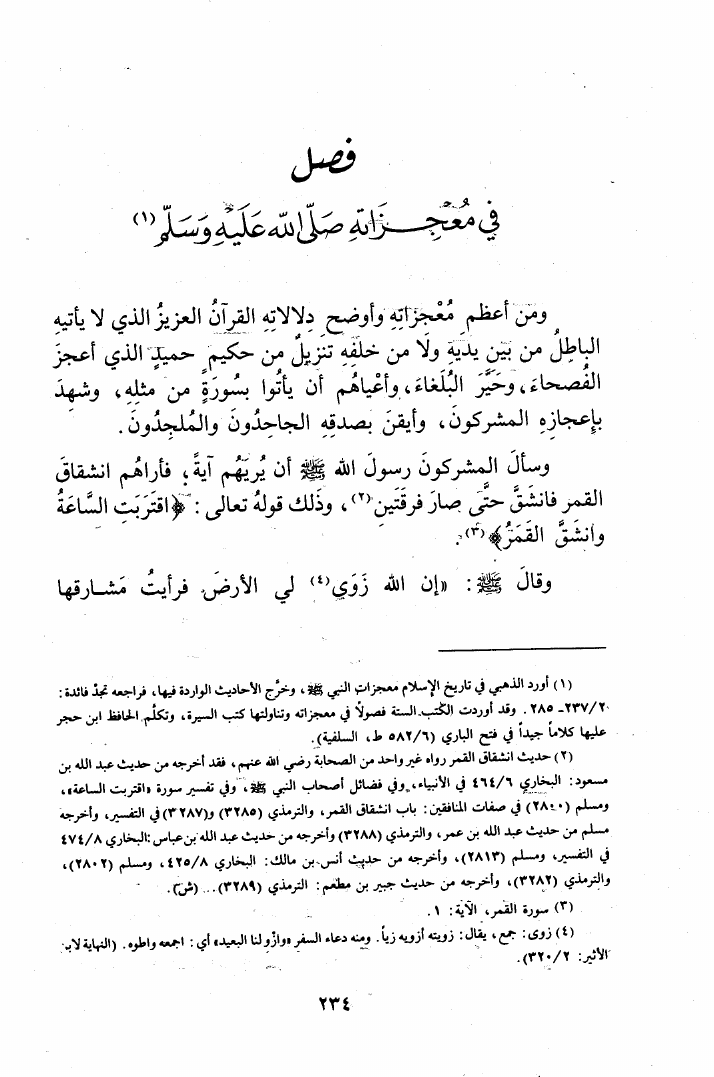 فصل
في مُعْجِزَاتِهِ صَلَّى اللهُ عَلَيْهِ وَسَلَّم (١)
ومن أعظم مُعْجزاتِهِ وأوضح دِلالاتِه القرآنُ العزيزُ الذي لا يأتيهِ
الباطِلُ من بَيْنِ يدَيْهِ ولا من خلفِهِ تنزيلٌ من حكيمٍ حميدٍ الذي أعجزَ
الفُصحاءَ، وحَيَّرَ البُلَغاءَ، وأعْياهُم أن يأتُوا بسُورَةٍ من مثلِهِ، وشهِدَ
بإعجازِهِ المشركونَ، وأيقنَ بصدقِهِ الجاحِدُونَ والمُلحِدُونَ.
وسألَ المشركونَ رسولَ الله ﷺ أن يُريَهُم آيةً؛ فأراهُم انشقاقَ
القمر فانشَقَّ حتَّى صارَ فرقَتَين(٢)، وذَلك قولهُ تعالى: ﴿اقتَرَبَتِ السَّاعَةُ
وانشَقَّ القَمَرُ﴾(٣).
وقالَ ﷺ: «إن الله زَوَي(٤) لي الأرضَ فرأيتُ مَشارقها
(١) أورد الذهبي في تاريخ الإسلام معجزات النبي ﷺ، وخرَّج الأحاديث الواردة فيها، فراجعه تجدْ فائدة:
٢٣٧/٢ـ ٢٨٥. وقد أوردت الكتب الستة فصولًا في معجزاته وتناولتها كتب السيرة، وتكلَّم الحافظ ابن حجر
عليها كلاماً جيداً في فتح الباري (٥٨٢/٦ ط، السلفية).
(٢) حديث انشقاق القمر رواه غير واحد من الصحابة رضي الله عنهم، فقد أخرجه من حديث عبد الله بن
مسعود: البخاري ٤٦٤/٦ في الأنبياء، وفي فضائل أصحاب النبي ﷺ، وفي تفسير سورة «اقتربت الساعة»،
ومسلم (٢٨٠٠) في صفات المنافقين: باب انشقاق القمر، والترمذي (٣٢٨٥) و(٣٢٨٧) في التفسير، وأخرجه
مسلم من حديث عبد الله بن عمر، والترمذي (٣٢٨٨) وأخرجه من حديث عبد الله بن عباس: البخاري ٤٧٤/٨
في التفسير، ومسلم (٢٨١٣)، وأخرجه من حديث أنس بن مالك: البخاري ٤٢٥/٨، ومسلم (٢٨٠٢)،
والترمذي (٣٢٨٢)، وأخرجه من حديث جبير بن مطعم: الترمذي (٣٢٨٩)... (ش).
(٣) سورة القمر، الآية: ١.
(٤) زوى: جمع، يقال: زويته أزويه زياً. ومنه دعاء السفر «وازْوِ لنا البعيد» أي: اجمعه واطوه. (النهاية لابن
الأثير: ٣٢٠/٢).
٢٣٤